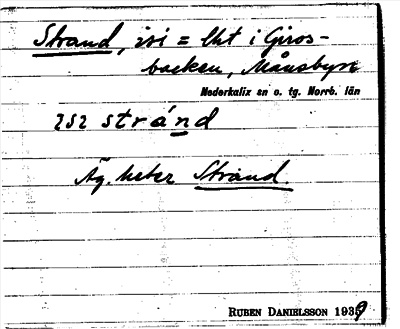 Strand, isi = lht i Giros-
backen, Månsbyn
Nederkalix sn o. tg. Norrb. län
stránd
Äg. heter Strand.
RUBEN DANIELSSON 1939